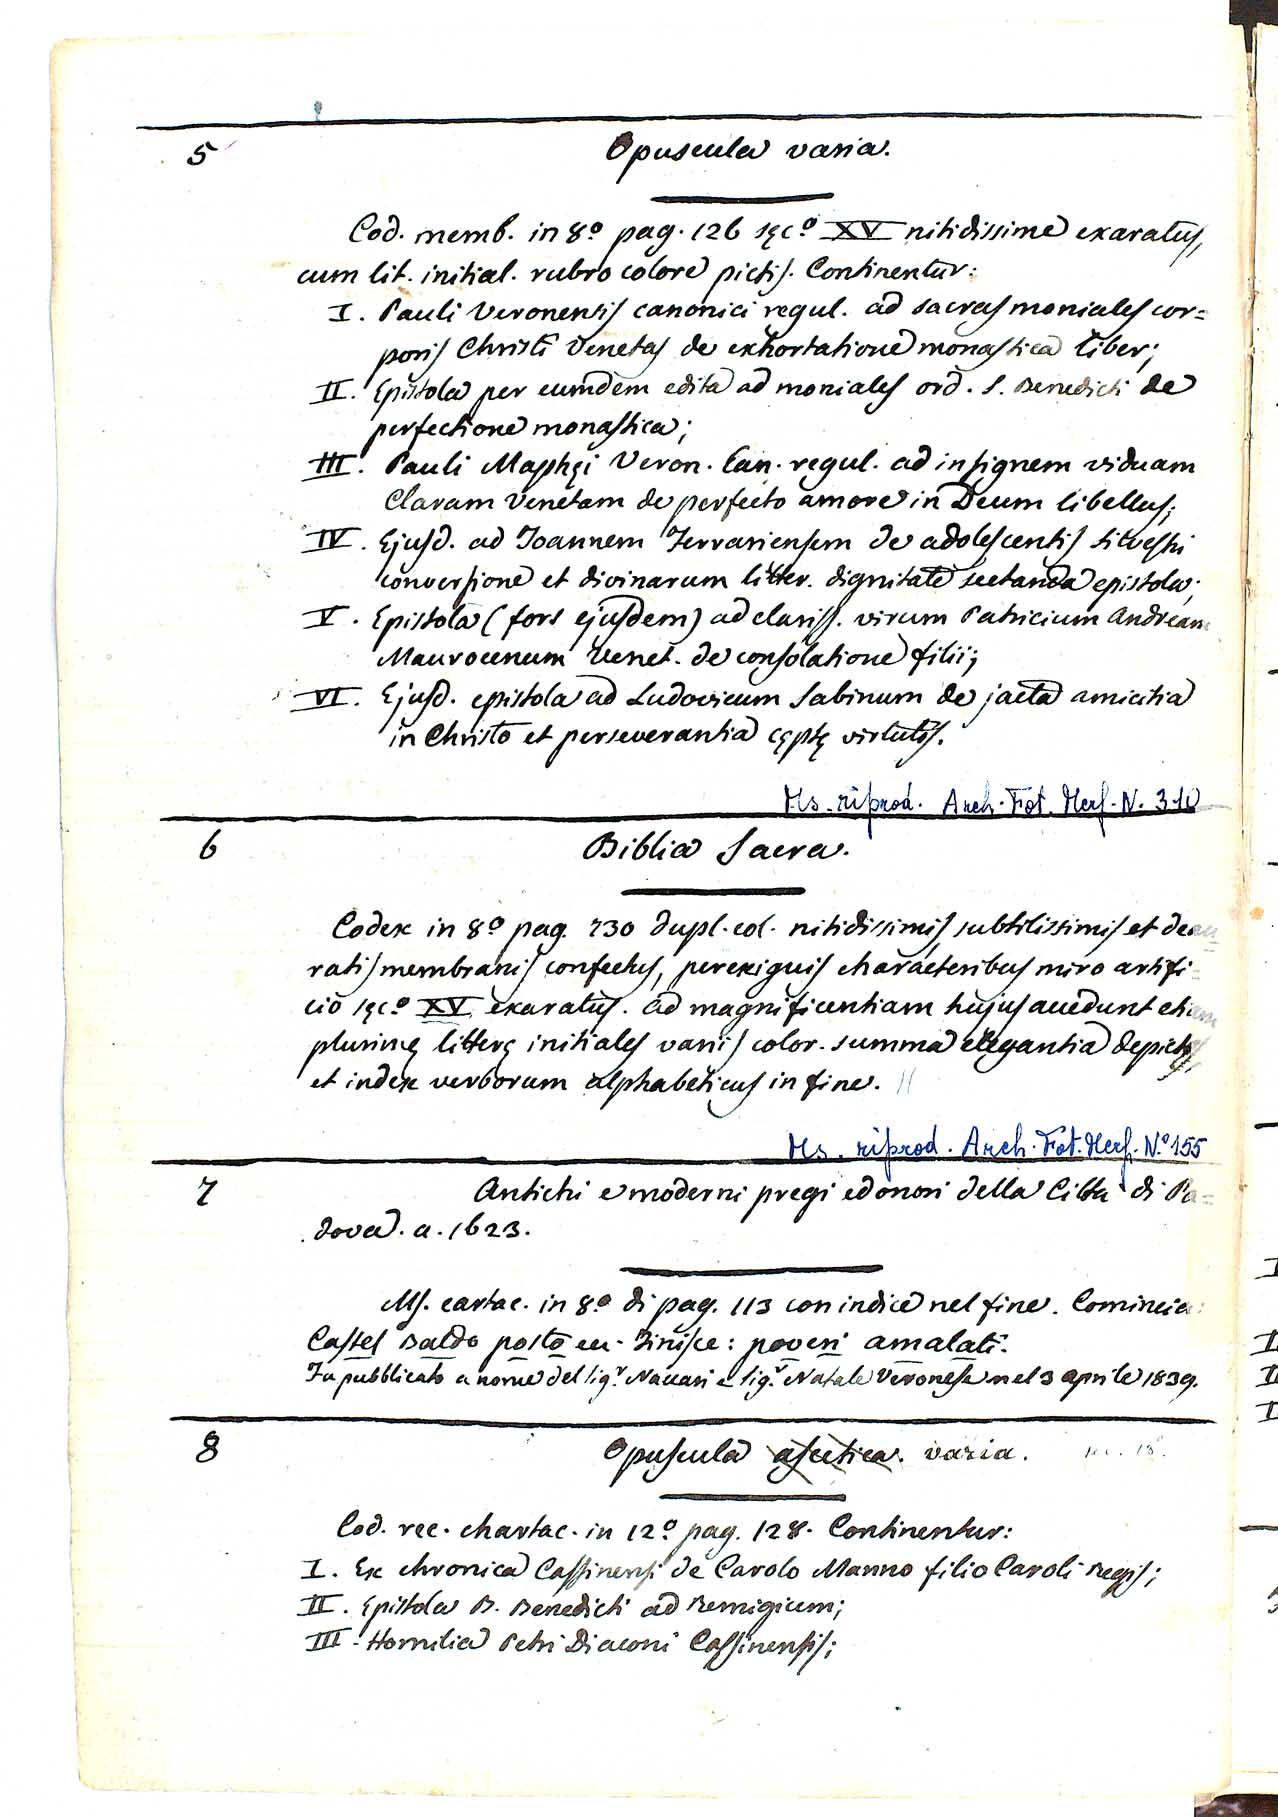 5
Opuscula varia.
Cod. memb. in 8.º pag. 126 sęc.º XV nitidissime exaratus,
cum lit. initial. rubro colore pictis. Continentur:
I. Pauli Veronensis canonici regul. ad sacras moniales cor=
poris Christi Venetas de exhortatione monastica liber;
II. Epistola per eumdem edita ad moniales ord. S. Benedicti de
perfectione monastica;
III. Pauli Maphęi Veron. Can. regul. ad insignem viduam
Claram Venetam de perfecto amore in Deum libellus;
IV. Ejusd. ad Joannem Terrariensem de adolescentis silvestri
conversione et divinarum litter. dignitate sectanda epistola;
V. Epistola (fors ejusdem) ad clariss. virum Patricium Andream
Maurocenum Venet. de consolatione filii;
VI. Ejusd. epistola ad Ludovicum Sabinum de jacta amicitia
in Christo et perseverantia cęptę virtutis.
Ms. riprod. Arch. Fot. Herf. N. 310
6
Biblia Sacra.
Codex in 8.º pag. 730 dupl. col. nitidissimis, subtilissimis et deau=
ratis membranis confectus, perexiguis characteribus miro artifi=
cio sęc.º XV exaratus. Ad magnificentiam hujus accedunt etiam
plurimę litterę initiales variis color. summa elegantia depictę,
et index verborum alphabeticus in fine.
Ms. riprod. Arch. Fot. Herf. N.º 155
7
Antichi e moderni pregi ed onori della Città di Pa=
dova. a. 1623.
Ms. cartac. in 8.º di pag. 113 con indice nel fine. Comincia:
Castel Baldo posto ec. Finisce: poveri amalati.
Fu pubblicato a nome del sig.r Naccari e sig.r Natale Veronese nel 3 aprile 1839.
8
Opuscula ascetica. varia. sec. 18º.
Cod. rec. chartac. in 12.º pag. 128. Continentur:
I. Ex chronica Cassinensi de Carolo Manno filio Caroli Regis;
II. Epistola B. Benedicti ad Remigium;
III. Homilia Petri Diaconi Cassinensis;